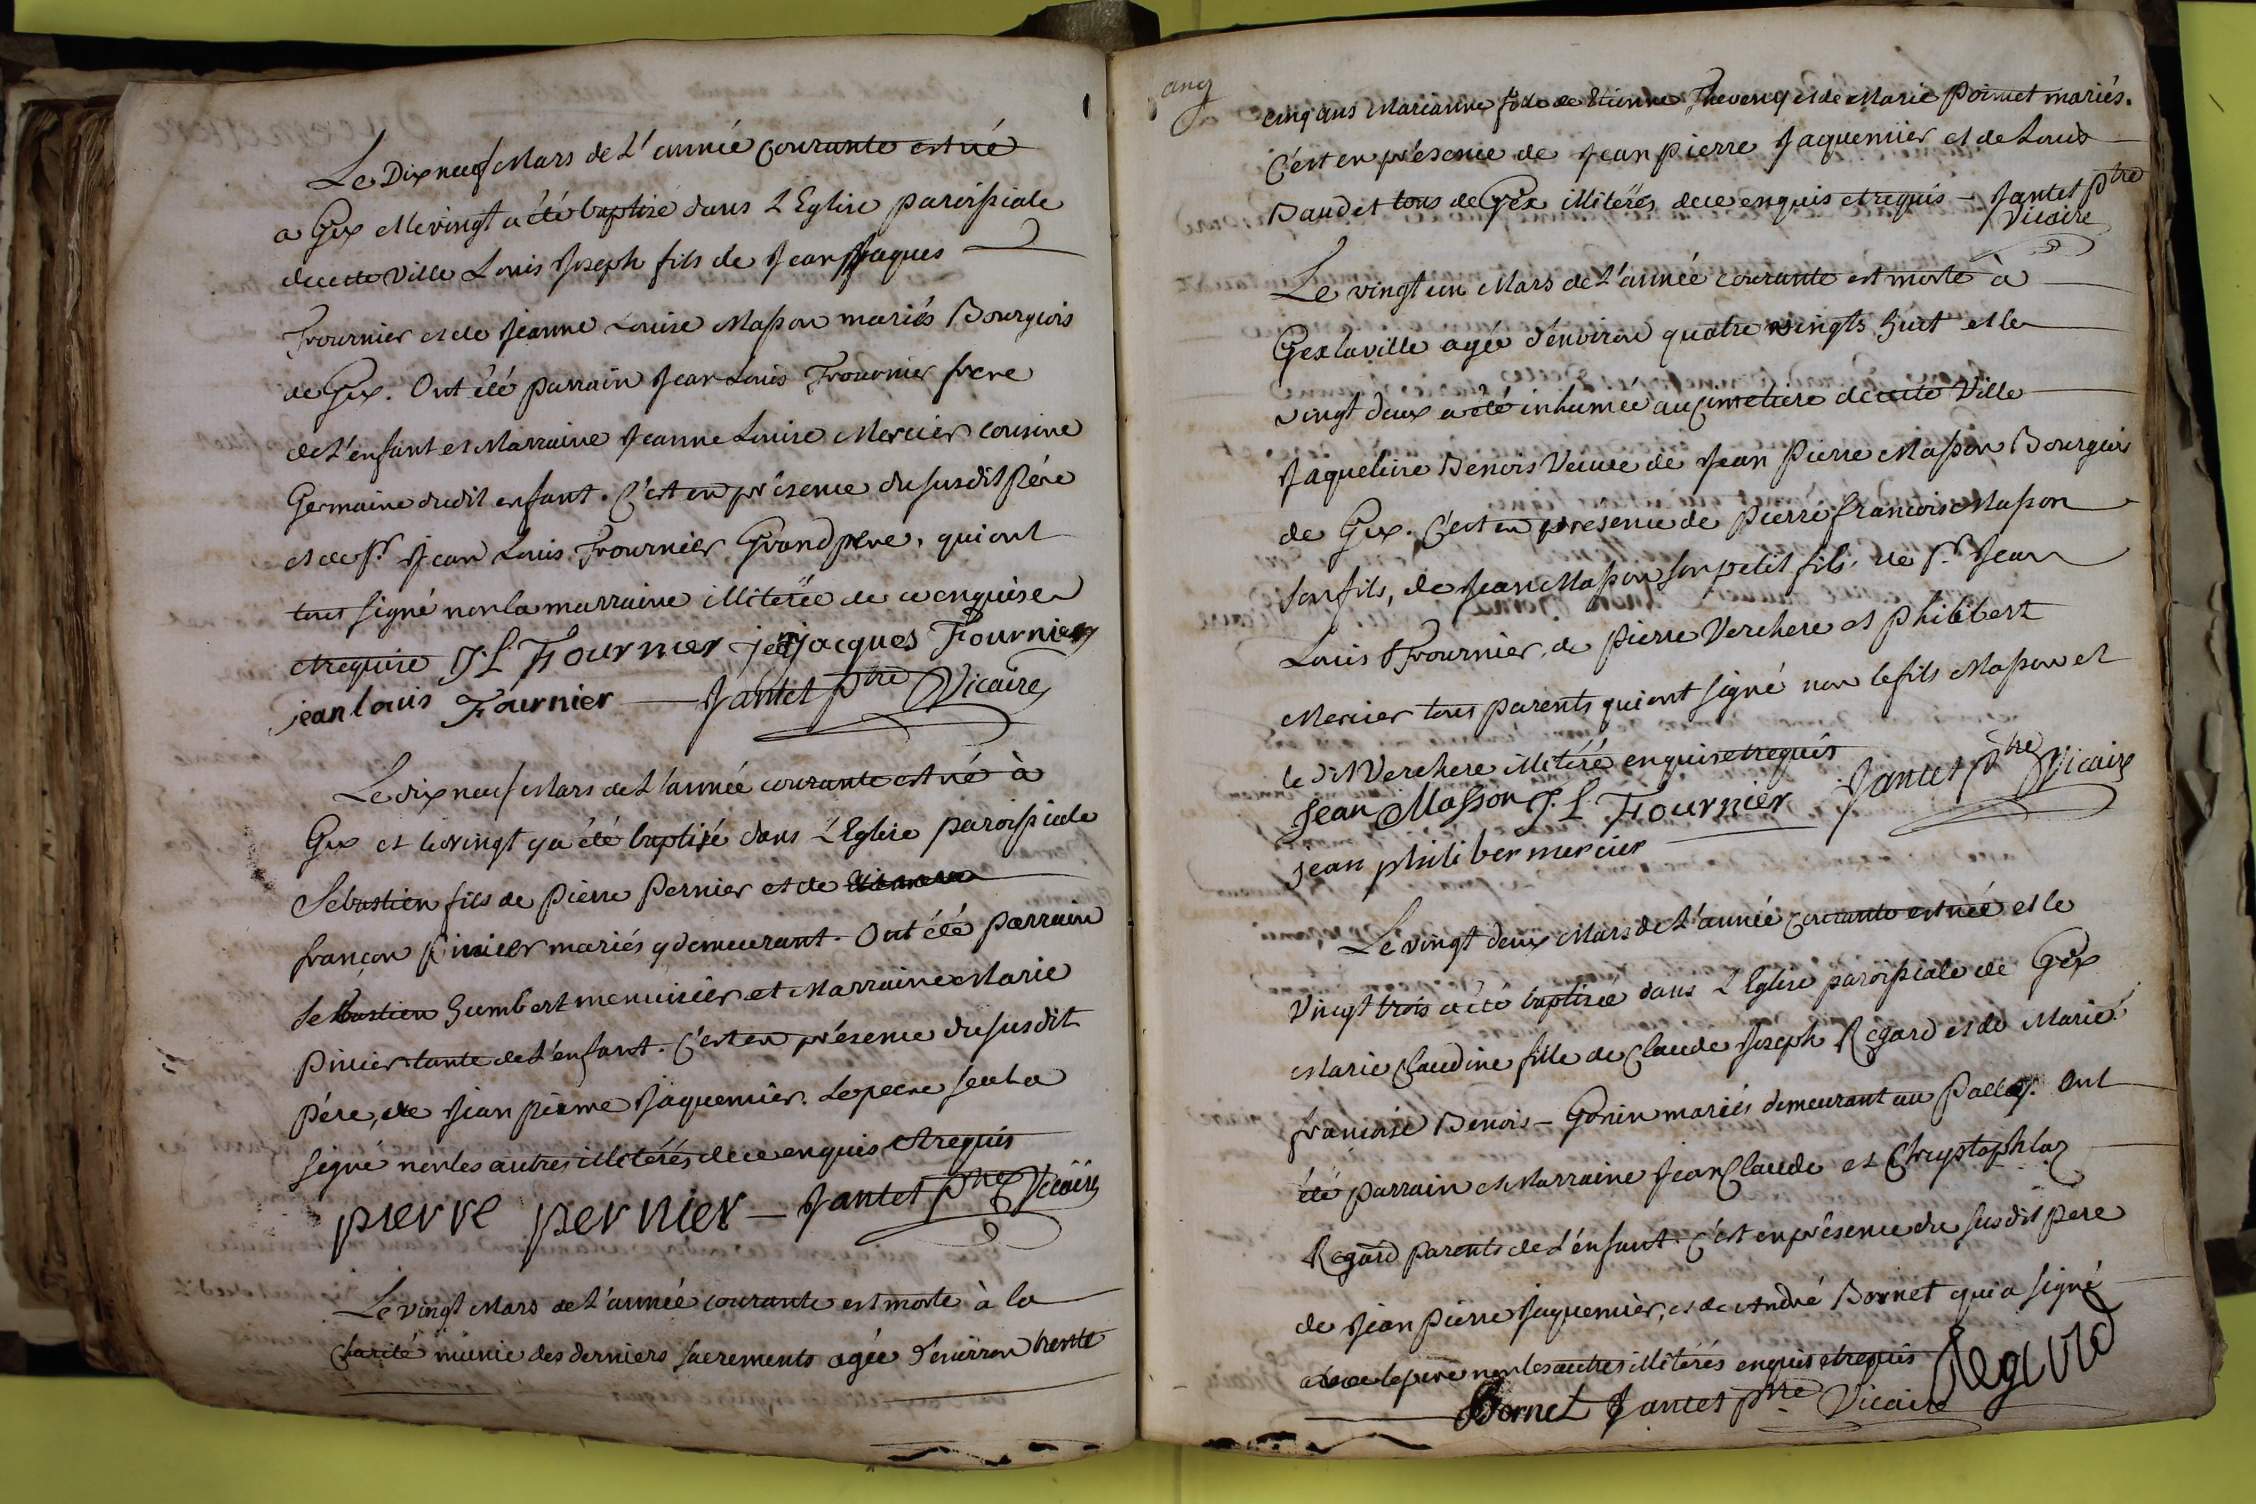 Le Dix neuf Mars de L'année courante est né
a Gex et le vingt a été baptisé dans L'Eglise paroissiale
de cette ville Louis Joseph fils de Jean Jaques
Fournier et de Jeanne Louise Masson mariés Bourgeois
de Gex. Ont été parrain Jean Louis Fournier frere
de L'enfant et Marraine Jeanne Louise Mercier cousine
Germaine dudit enfant. C'est en présence du susdit Pére
et de Sr. Jean Louis Fournier Grand pere, qui ont
tous signé non la marraine illiterée de ce enquise
et requise J: L Fournier jean jacques Fournier
jean louis Fournier Jantet ptre Vicaire
Le dix neuf Mars de L'année courante est né à
Gex et le vingt y a été baptisé dans L'Eglise paroissiale
Sebastien fils de Pierre Pernier et de
françon Pinier mariés y demeurant. Ont été parrain
Sebastien humbert menuisier et Marraine Marie
Pinier tante de L'enfant. C'est en présence du susdit
Pére, de Jean pierre Jaquemier. Le pere seul a
signé non les autres illitérés de ce enquis et requis
pierre pernier Jantet ptre Vicaire
Le vingt Mars de L'année courante est morte à la
Charité munie des derniers sacrements agée d'environ trente
cinq
cinq ans Marianne fille de Etienne Theveny et de Marie Poimet mariés.
C'est en présence de Jean pierre Jaquemier et de Louis
Baudet tous de Gex illitérés de ce enquis et requis – Jantet ptre
Vicaire
Le vingt un Mars de L'année courante est morte à
Gex la ville agée d'environ quatre vingts huit et le
vingt deux a été inhumée au Cimetiere de cette Ville
Jaqueline Benois Veuve de Jean Pierre Masson Bourgeois
de Gex. C'est en presence de Pierre francois Masson
son fils, de Jean Masson son petit fils, de Sr. Jean
Louis Fournier, de Pierre Verchere et Philibert
Mercier tous parents qui ont signé non le fils Masson et
le dit Verchere illitéré enquis et requis
Jean Masson J. L Fournier Jantet ptre Vicaire
jean philiber mercier
Le vingt deux Mars de L'année courante est née et le
Vingt trois a été baptisée dans L'Eglise paroissiale de Gex
Marie Claudine fille de Claude Joseph Regard et de Marie
francoise Benois – Gonin mariés demeurant au. Ont
été parrain et Marraine Jean Claude et Chrystophla
Regard parents de L'enfant. C'est en présence du susdit pere
de Jean Pierre Jaquemier, et de André Bornet qui a signé
avec le pere non les autres illitérés enquis et requis Regard
Bornet Jantet ptre Vicaire